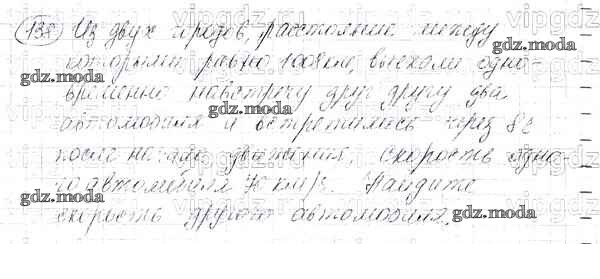 138) Из двух городов, расстояние между
которыми равно 1008 км, выехали одно-
временно навстречу друг другу два
автомобиля и встретились через 8 ч
после начала движения. Скорость одно-
го автомобиля 70 км/ч. Найдите
скорость другого автомобиля.